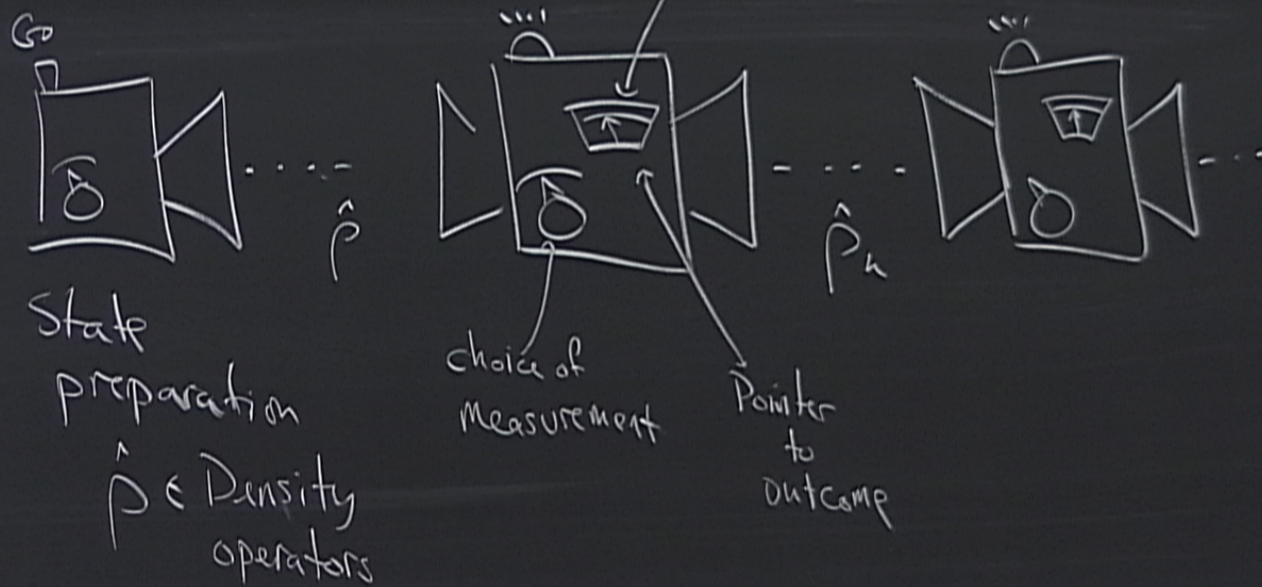 Go
ρ̂
ρ̂ₙ
State
preparation
ρ̂ ∈ Density
operators
choice of
measurement
Pointer
to
outcome